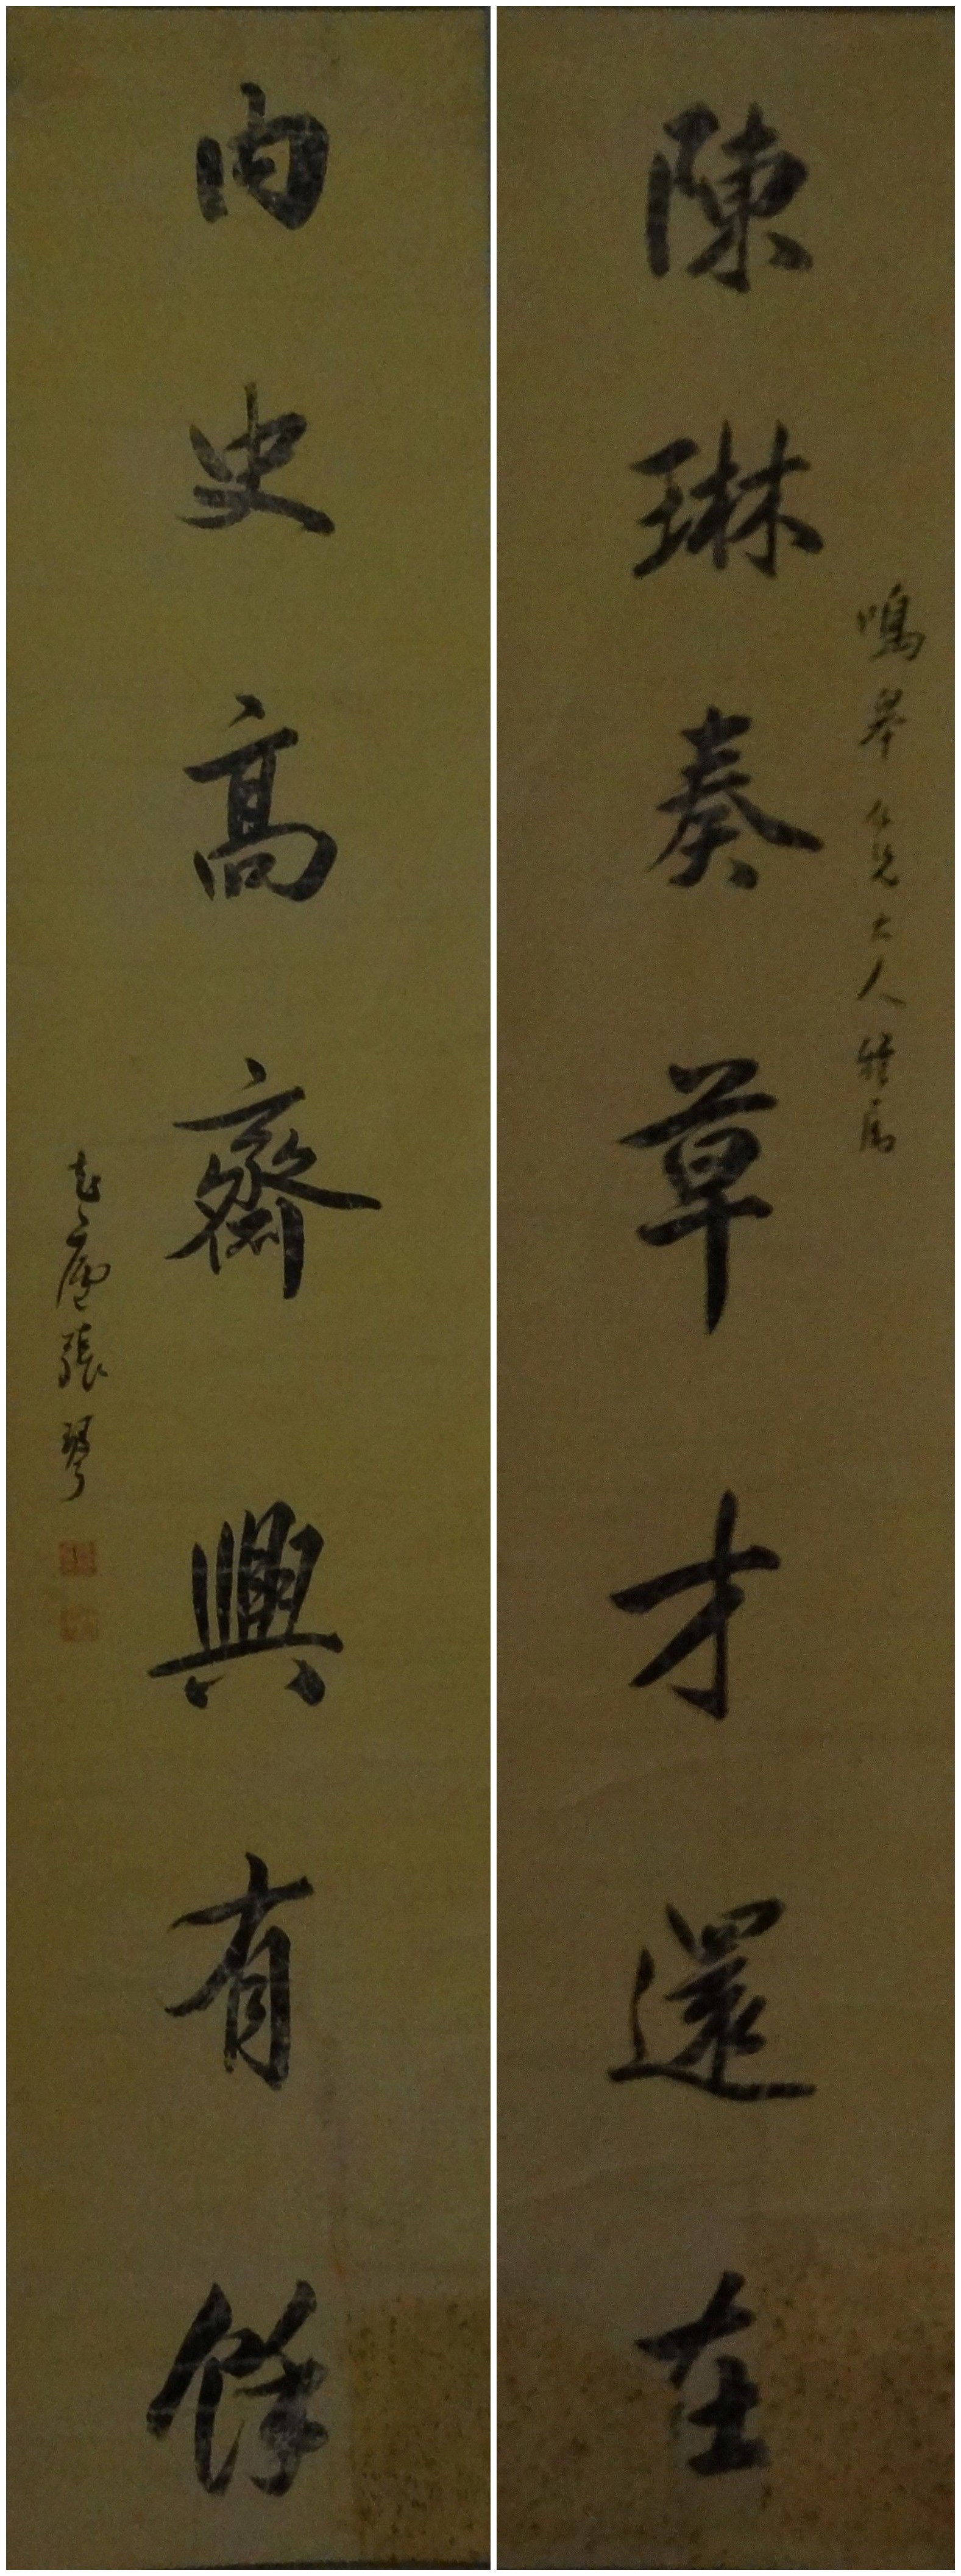 鳴皋仁兄大人雅屬
陳琳奏草才還在
內史高齋興有餘
老庵張琴